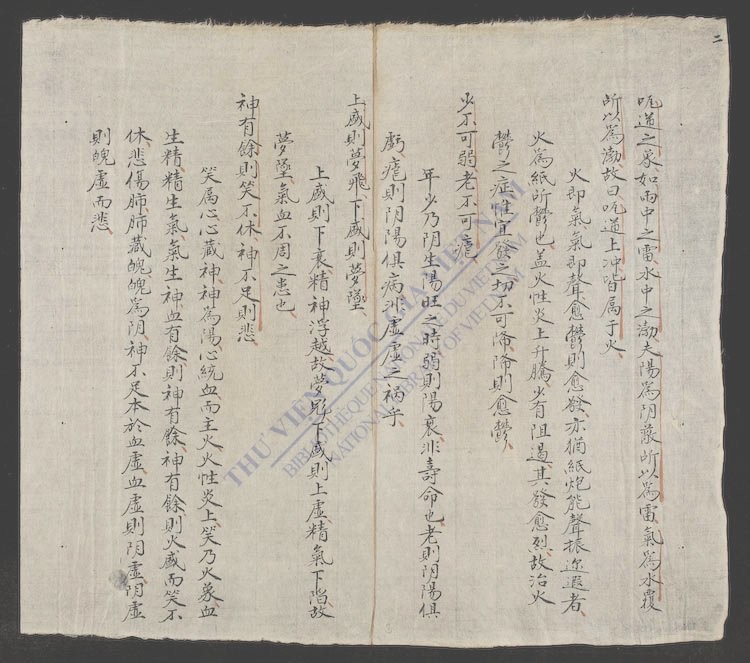 二
呃道之象如雨中之雷水中之渤夫陽爲阴蒙所以爲雷氣爲水覆
所以爲渤故曰呃道上冲皆属于火
火即氣氣即聲愈鬱則愈發亦猶紙炮能聲振迩遐者
火爲紙所鬱也盖火性炎上升騰少有阻遏其發愈烈故治火
鬱之症性宜發之切不可降降則愈鬱
少不可弱老不可瘧
年少乃阴生陽旺之時弱則陽衰非壽命也老則阴陽俱
虧瘧則阴陽俱病非虛虛之祸乎
上盛則夢飛下盛則夢墜
上盛則下衰精神浮越故夢飛下盛則上虛精氣下陷故
夢墜氣血不周之患也
神有餘則笑不休神不足則悲
笑属心心藏神神爲陽心統血而主火火性炎上笑乃火象血
生精精生氣氣生神血有餘則神有餘神有餘則火盛而笑不
休悲傷肺肺藏魄魄爲阴神不足本於血虛血虛則阴虛阴虛
則魄虛而悲
THƯ VIỆN QUỐC GIA VIỆT NAM
BIBLIOTHÈQUE NATIONALE DU VIETNAM
NATIONAL LIBRARY OF VIETNAM